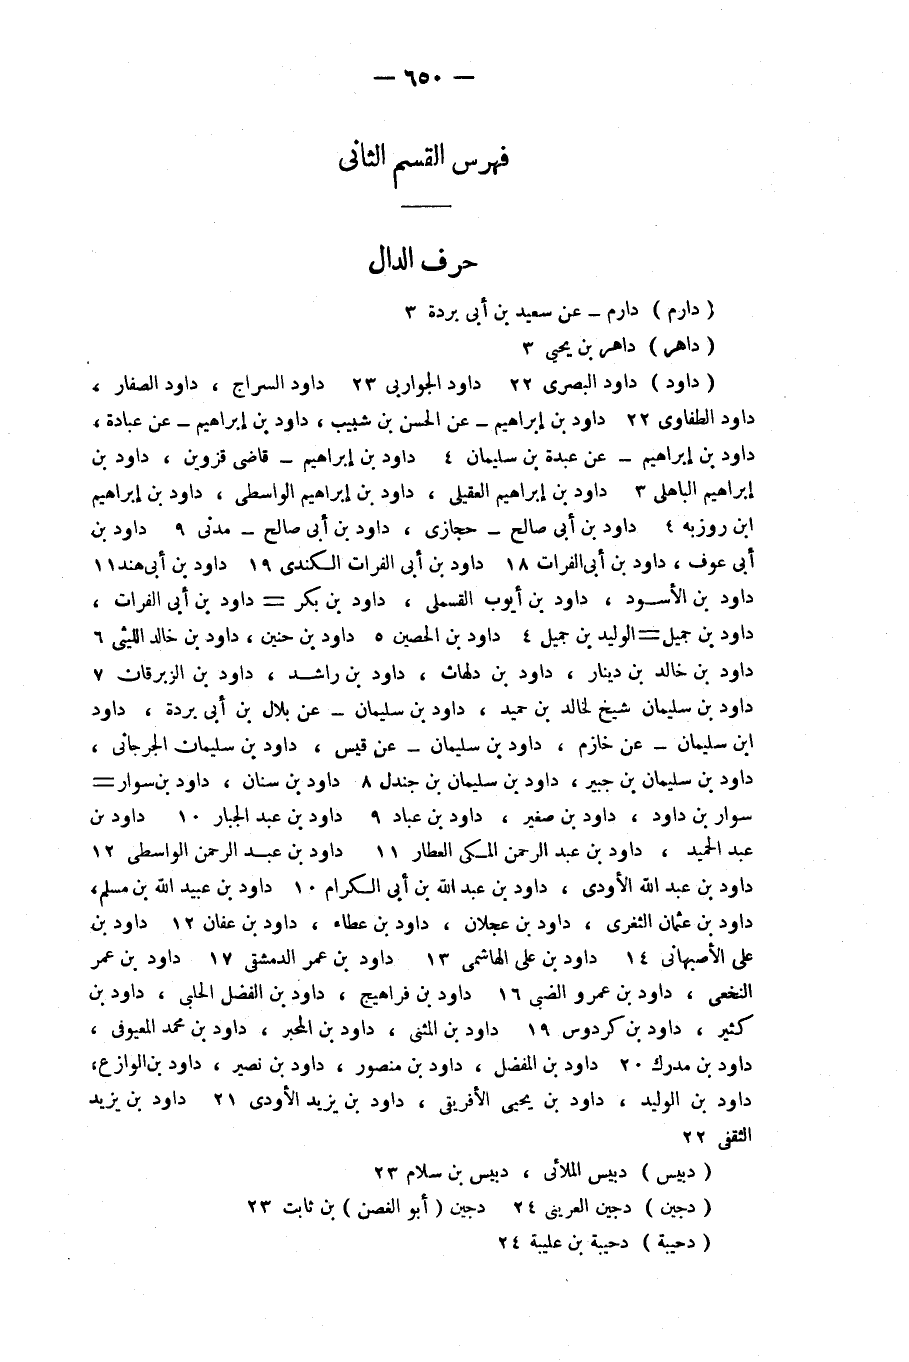 — ٦٥٠ —
فهرس القسم الثانى
حرف الدال
( دارم ) دارم – عن سعيد بن أبى بردة ٣
( داهر ) داهر بن يحيى ٣
( داود ) داود البصرى ٢٢ داود الجواربى ٢٣ داود السراج ، داود الصفار ،
داود الطفاوى ٢٢ داود بن إبراهيم – عن الحسن بن شبيب ، داود بن إبراهيم – عن عبادة ،
داود بن إبراهيم – عن عبدة بن سليمان ٤ داود بن إبراهيم – قاضى قزوين ، داود بن
إبراهيم الباهلى ٣ داود بن إبراهيم العقيلى ، داود بن إبراهيم الواسطى ، داود بن إبراهيم
ابن روزبه ٤ داود بن أبى صالح – حجازى ، داود بن أبى صالح – مدنى ٩ داود بن
أبى عوف ، داود بن أبى الفرات ١٨ داود بن أبى الفرات الكندى ١٩ داود بن أبى هند ١١
داود بن الأسود ، داود بن أيوب القسملى ، داود بن بكر = داود بن أبى الفرات ،
داود بن جميل = الوليد بن جميل ٤ داود بن الحصين ٥ داود بن حنين ، داود بن خالد الليثى ٦
داود بن خالد بن دينار ، داود بن دلهاث ، داود بن راشد ، داود بن الزبرقان ٧
داود بن سليمان شيخ لخالد بن حميد ، داود بن سليمان – عن بلال بن أبى بردة ، داود
ابن سليمان – عن خازم ، داود بن سليمان – عن قيس ، داود بن سليمان الجرجانى ،
داود بن سليمان بن جبير ، داود بن سليمان بن جندل ٨ داود بن سنان ، داود بن سوار =
سوار بن داود ، داود بن صغير ، داود بن عباد ٩ داود بن عبد الجبار ١٠ داود بن
عبد الحميد ، داود بن عبد الرحمن المكى العطار ١١ داود بن عبد الرحمن الواسطى ١٢
داود بن عبد الله الأودى ، داود بن عبد الله بن أبى الكرام ١٠ داود بن عبيد الله بن مسلم،
داود بن عثمان الثغرى ، داود بن عجلان ، داود بن عطاء ، داود بن عفان ١٢ داود بن
على الأصبهانى ١٤ داود بن على الهاشمى ١٣ داود بن عمر الدمشقى ١٧ داود بن عمر
النخعى ، داود بن عمرو الضبى ١٦ داود بن فراهيج ، داود بن الفضل الحلبى ، داود بن
كثير ، داود بن كردوس ١٩ داود بن المثنى ، داود بن المحبر ، داود بن محمد المعيوفى ،
داود بن مدرك ٢٠ داود بن المفضل ، داود بن منصور ، داود بن نصير ، داود بن الوازع،
داود بن الوليد ، داود بن يحيى الأفريقى ، داود بن يزيد الأودى ٢١ داود بن يزيد
الثقفى ٢٢
( دبيس ) دبيس الملائى ، دبيس بن سلام ٢٣
( دجين ) دجين العرينى ٢٤ دجين ( أبو الغصن ) بن ثابت ٢٣
( دحيبة ) دحيبة بن عليبة ٢٤